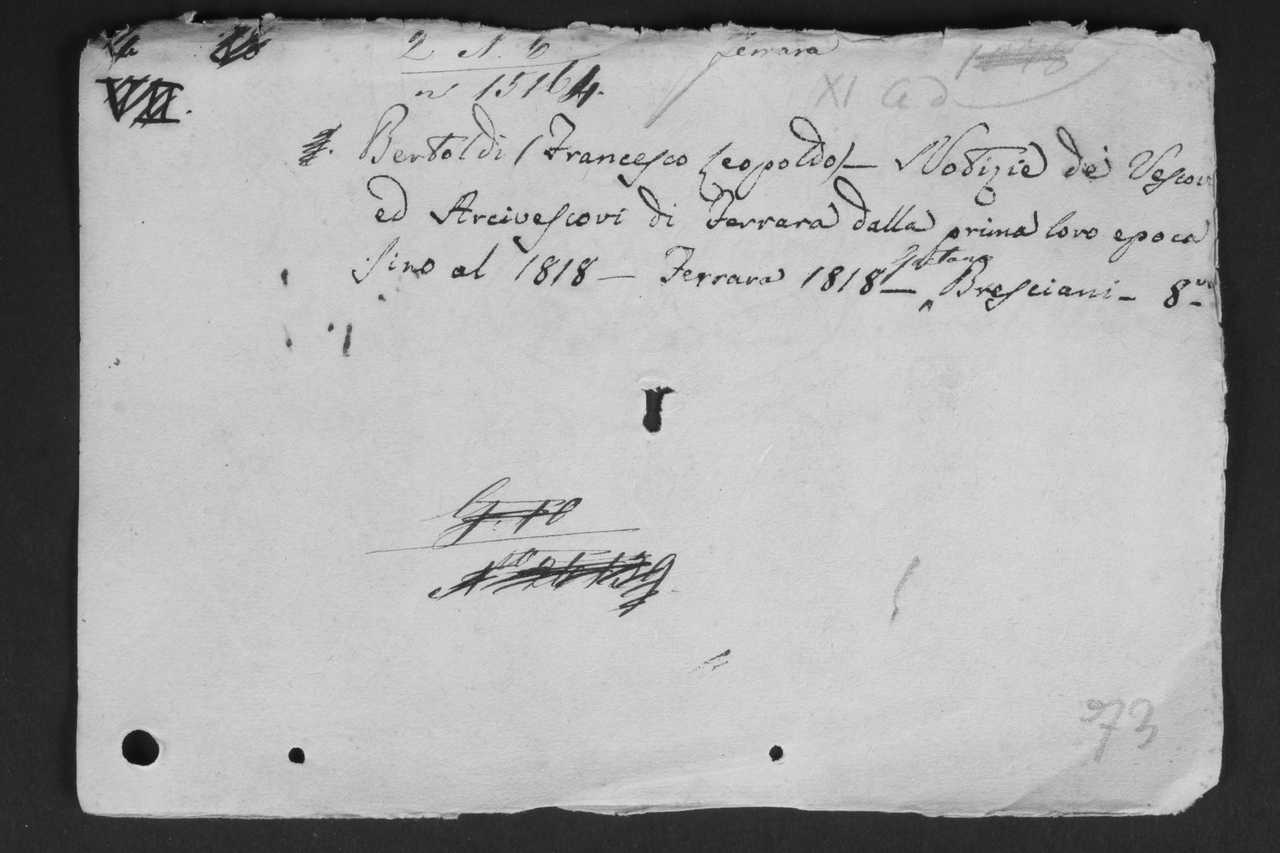 Ferrara
VII.
nº 15164.
XI
Bertoldi (Francesco Leopoldo) — Notizie de' Vescovi
ed Arcivescovi di Ferrara dalla prima loro epoca
sino al 1818 — Ferrara 1818 — Gaetano Bresciani — 8.vo
73